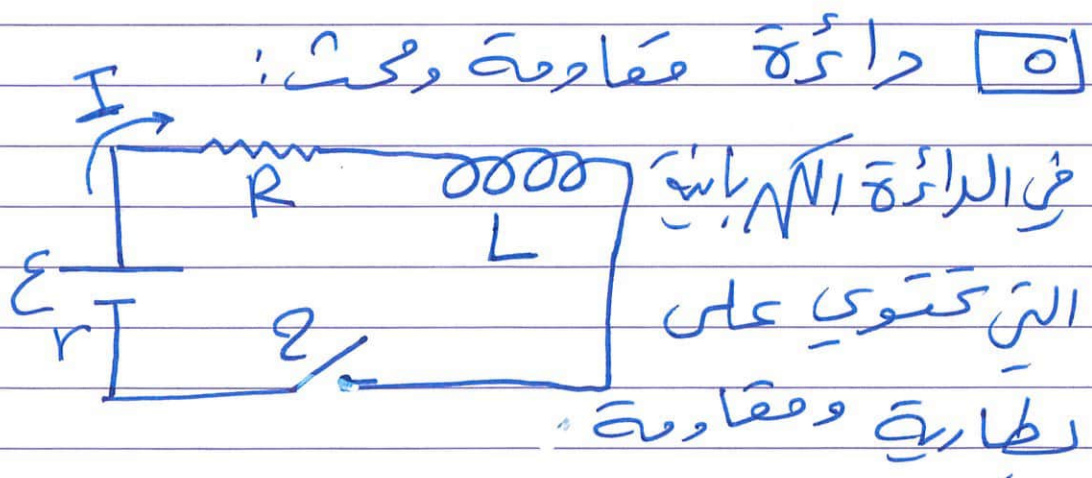 ٥ دائرة مقاومة ومحث:
في الدائرة الكهربائية
التي تحتوي على
بطارية ومقاومة
I
R
L
ε
r